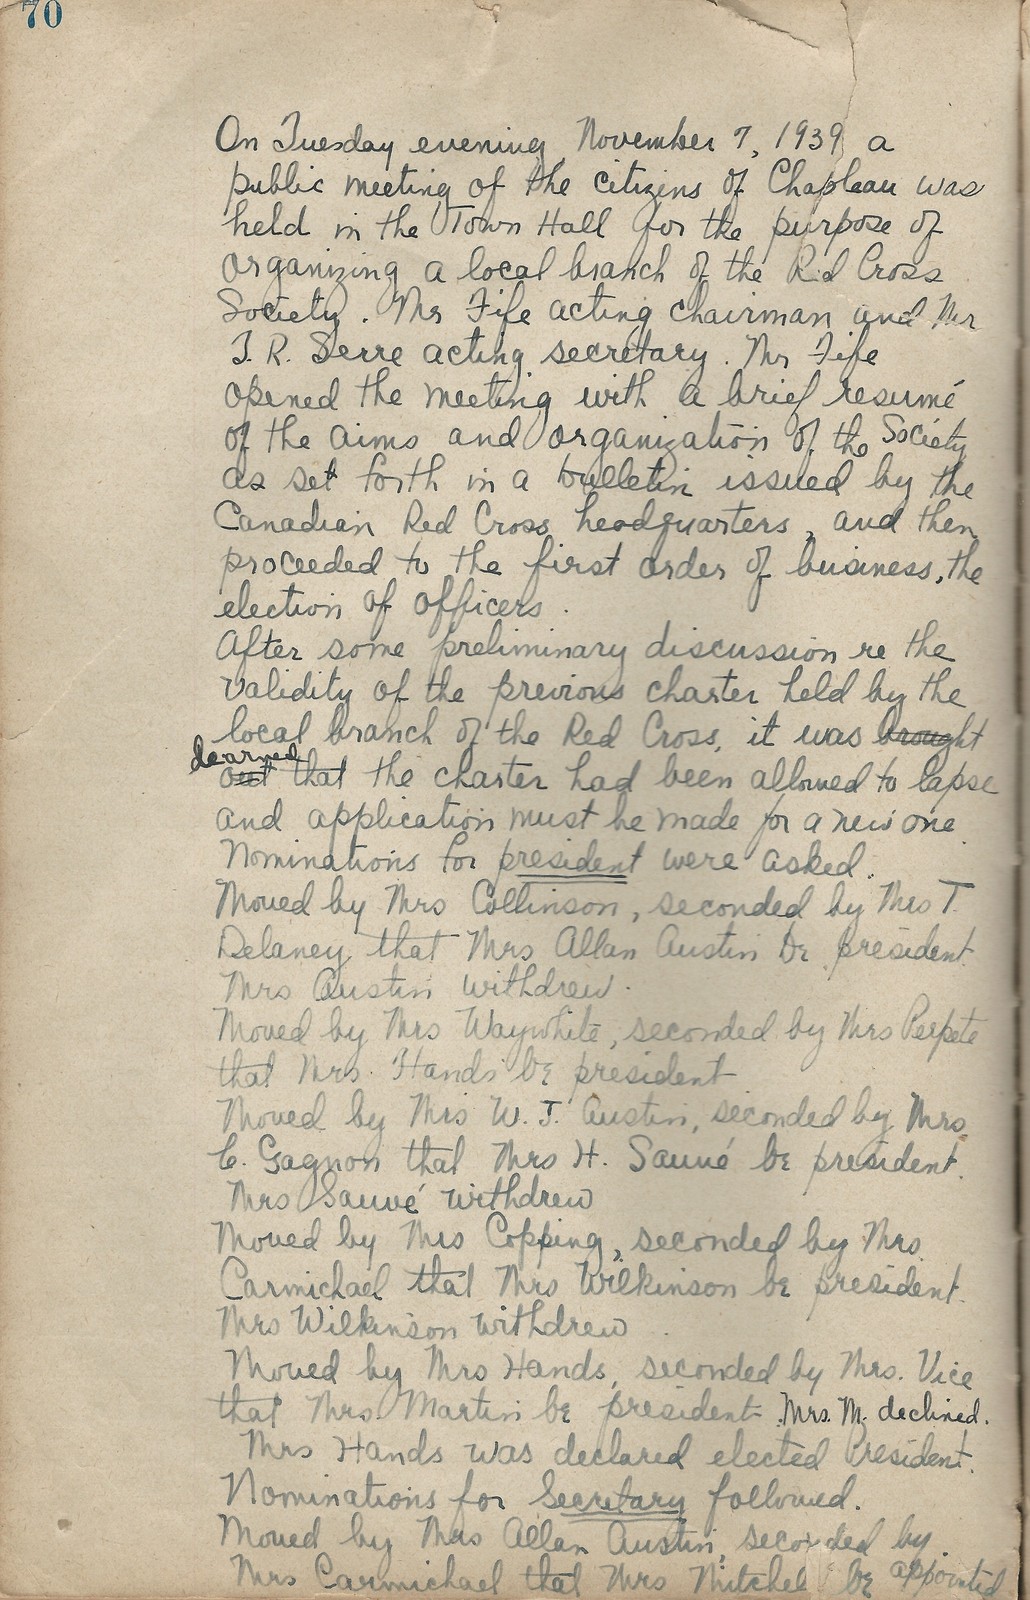 70
On Tuesday evening, November 7, 1939, a
public meeting of the citizens of Chapleau was
held in the Town Hall for the purpose of
organizing a local branch of the Red Cross
Society. Mr Fife acting chairman and Mr
J. R. Serre acting secretary. Mr Fife
opened the meeting with a brief resumé
of the aims and organization of the Society
as set forth in a bulletin issued by the
Canadian Red Cross headquarters, and then
proceeded to the first order of business, the
election of officers.
After some preliminary discussion re the
validity of the previous charter held by the
local branch of the Red Cross, it was brought
learned
out that the charter had been allowed to lapse
and application must be made for a new one
Nominations for president were asked.
Moved by Mrs Collinson, seconded by Mrs T.
Delaney that Mrs Allan Austin be president.
Mrs Austin withdrew.
Moved by Mrs Waywhite, seconded by Mrs Perpete
that Mrs. Hands be president
Moved by Mrs W. J. Austin, seconded by Mrs.
C. Gagnon that Mrs H. Sauvé be president.
Mrs Sauvé withdrew
Moved by Mrs Copping, seconded by Mrs.
Carmichael that Mrs Wilkinson be president.
Mrs Wilkinson withdrew.
Moved by Mrs Hands, seconded by Mrs. Vice
that Mrs. Martin be president. Mrs. M. declined.
Mrs Hands was declared elected President.
Nominations for Secretary followed.
Moved by Mrs Allan Austin, seconded by
Mrs Carmichael that Mrs Mitchell be appointed